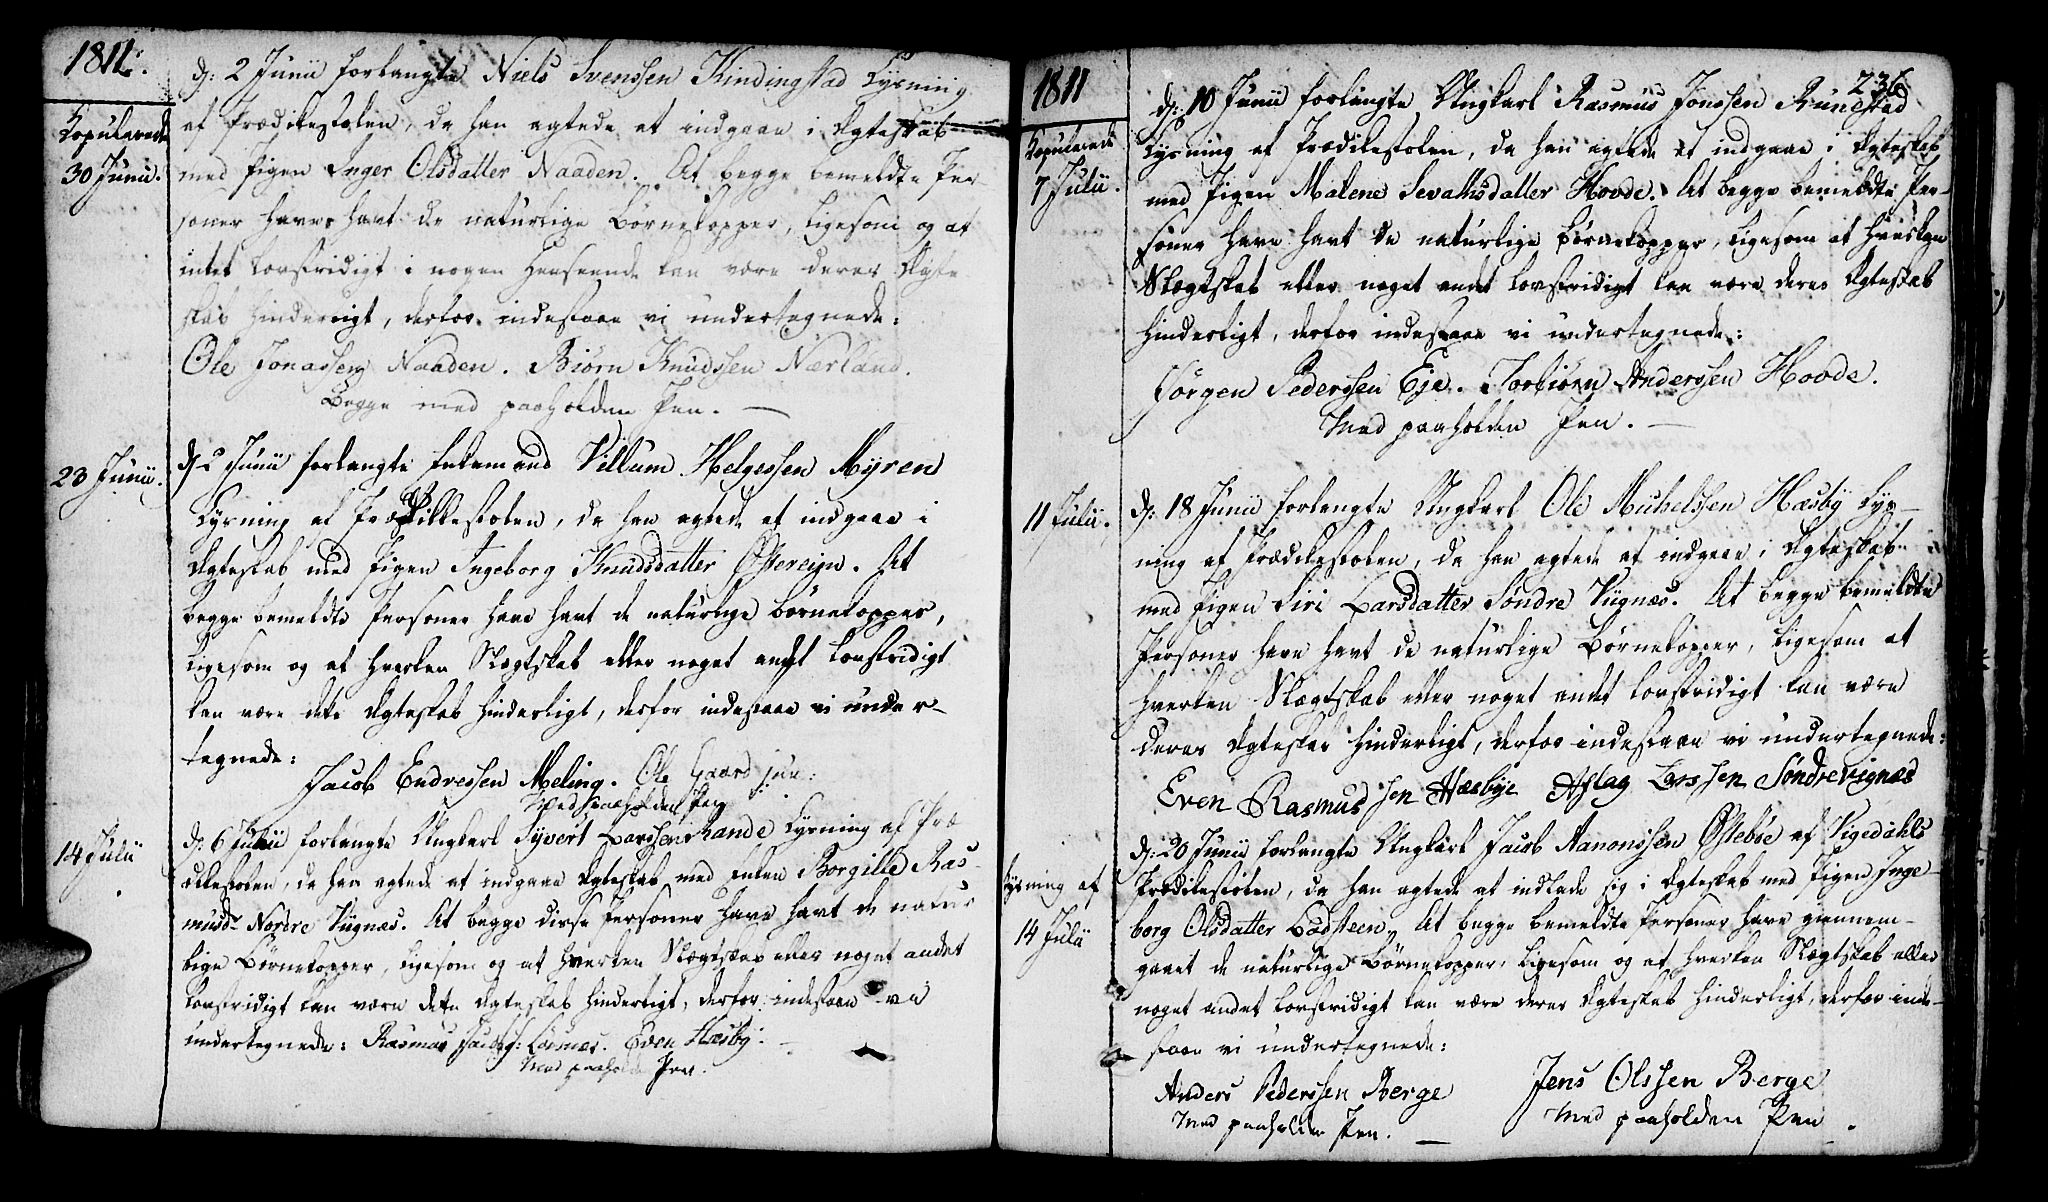 1811.
Copulerede
30 Junii.
d: 2 Junii forlangte Niels Svenssen Kindingstad Lysning
af Prædikestolen, da han agtede at indgaae i Ægteskab
med Pigen Inger Olsdatter Naaden. At begge bemeldte Per-
soner have havt de naturlige Børnekopper, ligesom og at
intet lovstridigt i nogen Henseende kan være deres Ægte
skab hinderligt, derfor indestaae vi undertegnede:
Ole Jonassen Naaden. Biørn Knudssen Nærland.
Begge med paaholden Pen. —
23 Junii.
d 2 Junii forlangte Enkemand Villum Helgessen Myren
Lysning af Prædikkestolen, da han agtede at indgaae i
Ægteskab med Pigen Ingeborg Knudsdatter Østereijn. At
begge bemeldte Personer have havt de naturlige Børnekopper,
ligesom og at hverken Slægtskab eller noget andet lovstridigt
kan være dette Ægteskab hinderligt, derfor indestaae vi under-
tegnede:
Jacob Endressen Meling. Ole Gaard jun:
Med paaholden Pen
14 Julii
d: 6 Junii forlangte Ungkarl Syvert Larssen Rande Lysning af Præ
dikestolen, da han agtede at indgaae Ægteskab med Enken Borgille Ras-
musdr Nordre Viignæs. At begge disse Personer have havt de natur
lige Børnekopper, ligesom og at hverken Slægtskab eller noget andet
lovstridigt kan være dette Ægteskab hinderligt, derfor indestaae vi
undertegnede: Rasmus Jacobs: Even Hæsby.
Med paaholden Pen.
1811
236
Copulerede
7 Julii.
d: 10 Junii forlangte Ungkarl Rasmus Jonssen Runestad
Lysning af Prædikestolen, da han agtede at indgaae i Ægteskab
med Pigen Malene Sevathsdatter Hovde. At begge bemeldte Per-
soner have havt de naturlige Børnekopper, ligesom at hverken
Slægtskab eller noget andet lovstridigt kan være deres Ægteskab
hinderligt, derfor indestaae vi undertegnede:
Jörgen Pederssen Eje. Torbiörn Anderssen Hovde.
Med paaholden Pen. —
11 Julii.
d: 18 Junii forlangte Ungkarl Ole Michelssen Hæsby Lys-
ning af Prædikestolen, da han agtede at indgaae i Ægteskab
med Pigen Siri Larsdatter Söndre Viignæs. At begge bemeldte
Personer have havt de naturlige Børnekopper, ligesom at
hverken Slægtskab eller noget andet lovstridigt kan være
deres Ægteskab hinderligt, derfor indestaae vi undertegnede:
Even Rasmussen Hæsbye Aslag Larssen Söndrevignæs
Lysning af
14 Julii
d: 20 Junii forlangte Ungkarl Jacob Aanonssen Østebøe af Vigedahls
Prædikestolen, da han agtede at indlade sig i Ægteskab med Pigen Inge-
borg Olsdatter Ladsteen, At begge bemeldte Personer have giennem-
gaaet de naturlige Børnekopper, ligesom og at hverken Slægtskab eller
noget andet lovstridigt kan være deres Ægteskab hinderligt, derfor inde-
staae vi undertegnede:
Anders Pederssen Berge
Med paaholden Pen. —
Jens Olssen Berge
Med paaholden Pen.